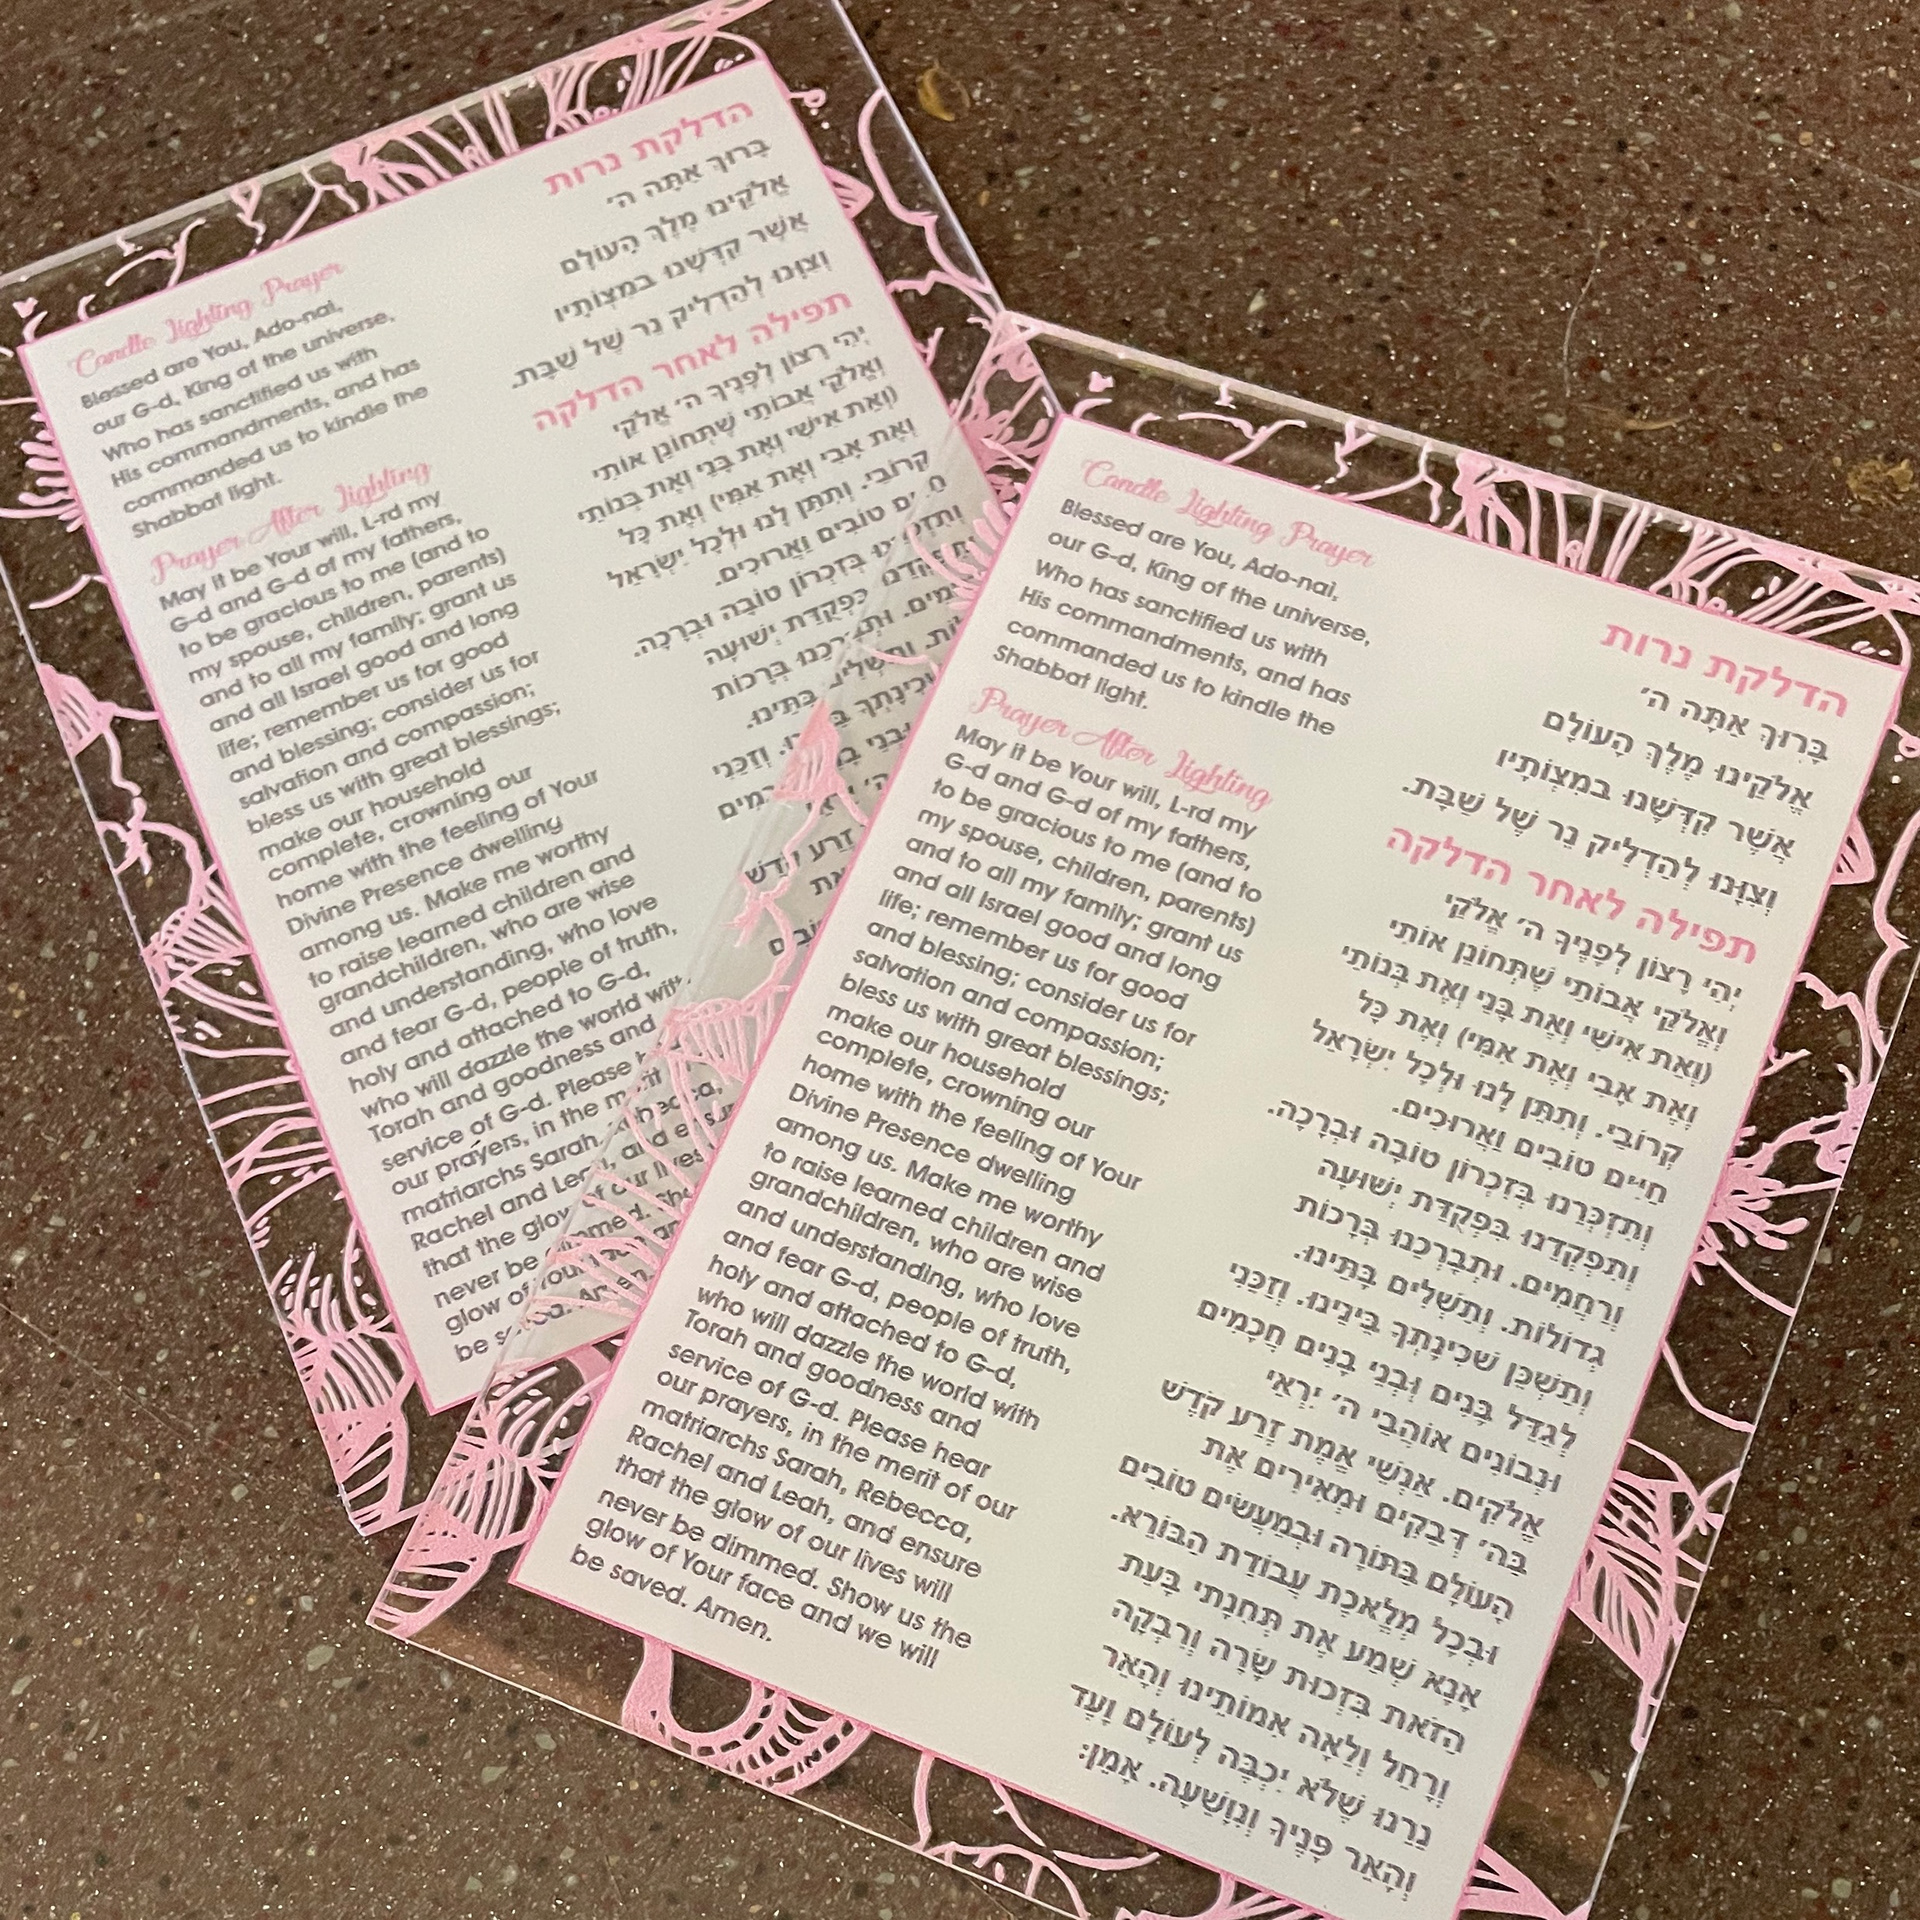 Candle Lighting Prayer
Blessed are You, Ado-nai,
our G-d, King of the universe,
Who has sanctified us with
His commandments, and has
commanded us to kindle the
Shabbat light.
Prayer After Lighting
May it be Your will, L-rd my
G-d and G-d of my fathers,
to be gracious to me (and to
my spouse, children, parents)
and to all my family; grant us
and all Israel good and long
life; remember us for good
and blessing; consider us for
salvation and compassion;
bless us with great blessings;
make our household
complete, crowning our
home with the feeling of Your
Divine Presence dwelling
among us. Make me worthy
to raise learned children and
grandchildren, who are wise
and understanding, who love
and fear G-d, people of truth,
holy and attached to G-d,
who will dazzle the world with
Torah and goodness and
service of G-d. Please
our prayers, in the merit
matriarchs Sarah, Rebecca,
Rachel and Leah, and ensure
that the glow of our lives
never be dimmed. Show
glow of Your face and
be saved. Amen.
הדלקת נרות
בָּרוּךְ אַתָּה ה׳
אֱלֹקֵינוּ מֶלֶךְ הָעוֹלָם
אֲשֶׁר קִדְּשָׁנוּ במִצְוֹתָיו
וְצִוָּנוּ לְהַדְלִיק נֵר שֶׁל שַׁבָּת.
תפילה לאחר הדלקה
יְהִי רָצוֹן לְפָנֶיךָ ה׳ אֱלֹקַי
וֵאֱלֹקֵי אֲבוֹתַי שֶׁתְּחוֹנֵן אוֹתִי
(וְאֶת אִישִׁי וְאֶת בָּנַי וְאֶת בְּנוֹתַי
וְאֶת אָבִי וְאֶת אִמִּי) וְאֶת כָּל
קְרוֹבַי. וְתִתֵּן לָנוּ וּלְכָל יִשְׂרָאֵל
טוֹבִים וַאֲרוּכִים.
בְּזִכְרוֹן טוֹבָה וּבְרָכָה.
כִּפְקֻדַּת יְשׁוּעָה
בְּרָכוֹת
בָּתֵּינוּ.
וְזַכֵּנִי
זֶרַע קֹדֶשׁ
אֶת
Candle Lighting Prayer
Blessed are You, Ado-nai,
our G-d, King of the universe,
Who has sanctified us with
His commandments, and has
commanded us to kindle the
Shabbat light.
Prayer After Lighting
May it be Your will, L-rd my
G-d and G-d of my fathers,
to be gracious to me (and to
my spouse, children, parents)
and to all my family; grant us
and all Israel good and long
life; remember us for good
and blessing; consider us for
salvation and compassion;
bless us with great blessings;
make our household
complete, crowning our
home with the feeling of Your
Divine Presence dwelling
among us. Make me worthy
to raise learned children and
grandchildren, who are wise
and understanding, who love
and fear G-d, people of truth,
holy and attached to G-d,
who will dazzle the world with
Torah and goodness and
service of G-d. Please hear
our prayers, in the merit of our
matriarchs Sarah, Rebecca,
Rachel and Leah, and ensure
that the glow of our lives will
never be dimmed. Show us the
glow of Your face and we will
be saved. Amen.
הדלקת נרות
בָּרוּךְ אַתָּה ה׳
אֱלֹקֵינוּ מֶלֶךְ הָעוֹלָם
אֲשֶׁר קִדְּשָׁנוּ במִצְוֹתָיו
וְצִוָּנוּ לְהַדְלִיק נֵר שֶׁל שַׁבָּת.
תפילה לאחר הדלקה
יְהִי רָצוֹן לְפָנֶיךָ ה׳ אֱלֹקַי
וֵאֱלֹקֵי אֲבוֹתַי שֶׁתְּחוֹנֵן אוֹתִי
(וְאֶת אִישִׁי וְאֶת בָּנַי וְאֶת בְּנוֹתַי
וְאֶת אָבִי וְאֶת אִמִּי) וְאֶת כָּל
קְרוֹבַי. וְתִתֵּן לָנוּ וּלְכָל יִשְׂרָאֵל
חַיִּים טוֹבִים וַאֲרוּכִים.
וְתִזְכְּרֵנוּ בְּזִכְרוֹן טוֹבָה וּבְרָכָה.
וְתִפְקְדֵנוּ בִּפְקֻדַּת יְשׁוּעָה
וְרַחֲמִים. וּתְבָרְכֵנוּ בְּרָכוֹת
גְּדוֹלוֹת. וְתַשְׁלִים בָּתֵּינוּ.
וְתַשְׁכֵּן שְׁכִינָתְךָ בֵּינֵינוּ. וְזַכֵּנִי
לְגַדֵּל בָּנִים וּבְנֵי בָנִים חֲכָמִים
וּנְבוֹנִים אוֹהֲבֵי ה׳ יִרְאֵי
אֱלֹקִים. אַנְשֵׁי אֱמֶת זֶרַע קֹדֶשׁ
בַּה׳ דְּבֵקִים וּמְאִירִים אֶת
הָעוֹלָם בַּתּוֹרָה וּבְמַעֲשִׂים טוֹבִים
וּבְכָל מְלֶאכֶת עֲבוֹדַת הַבּוֹרֵא.
אָנָא שְׁמַע אֶת תְּחִנָתִי בָּעֵת
הַזֹּאת בִּזְכוּת שָׂרָה וְרִבְקָה
וְרָחֵל וְלֵאָה אִמּוֹתֵינוּ וְהָאֵר
נֵרֵנוּ שֶׁלֹּא יִכְבֶּה לְעוֹלָם וָעֶד
וְהָאֵר פָּנֶיךָ וְנִוָּשֵׁעָה. אָמֵן: